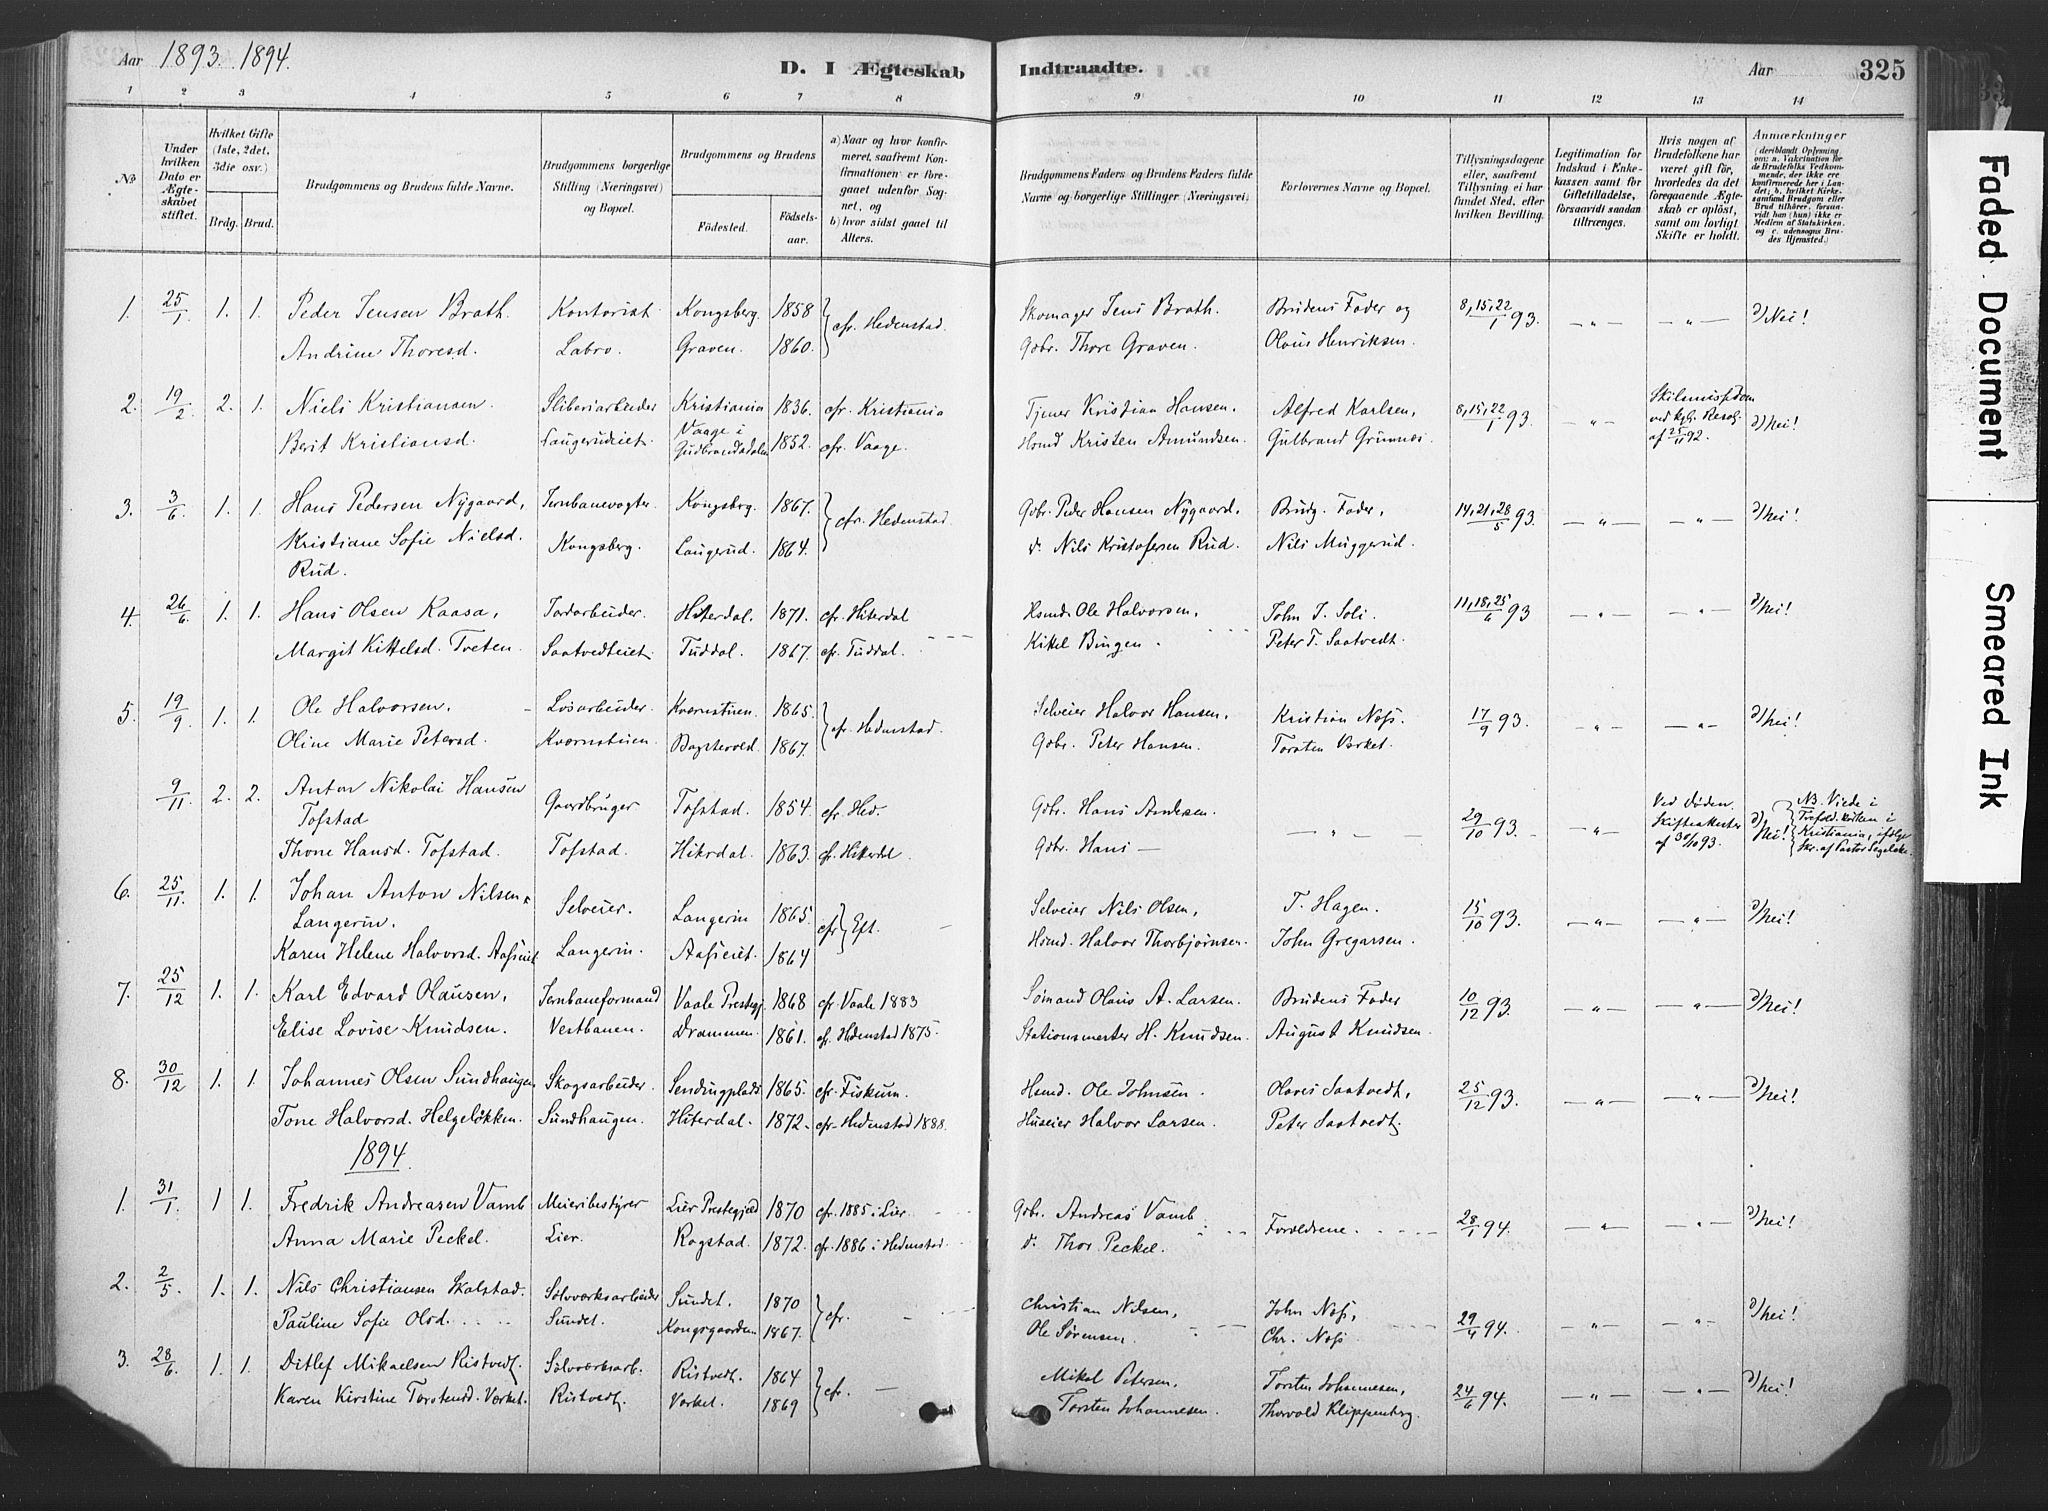 Aar 1893. 1894.
D. I Ægteskab Indtraadte.
Aar 325
1 2 3 4 5 6 7 8 9 10 11 12 13 14
№
Under hvilken Dato er Ægteskabet stiftet.
Hvilket Gifte (1ste, 2det, 3die osv.)
Brdg. Brud.
Brudgommens og Brudens fulde Navne.
Brudgommens borgerlige Stilling (Næringsvei) og Bopæl.
Brudgommens og Brudens
Födested.
Födselsaar.
a) Naar og hvor konfirmeret, saafremt Konfirmationen er foregaaet udenfor Sognet, og
b) hvor sidst gaaet til Alters.
Brudgommens Faders og Brudens Faders fulde Navne og borgerlige Stillinger (Næringsvei)
Forlovernes Navne og Bopæl.
Tillysningsdagene eller, saafremt Tillysning ei har fundet Sted, efter hvilken Bevilling.
Legitimation for Indskud i Enkekassen samt for Giftetilladelse, forsaavidt saadan tiltrænges.
Hvis nogen af Brudefolkene har været gift för, hvorledes da det foregaaende Ægteskab er oplöst, samt om lovligt Skifte er holdt.
Anmærkninger (deriblandt Oplysning om: a. Vakcination for de Brudefolks Vedkommende, der ikke ere konfirmerede her i Landet; b. hvilket Kirkesamfund Brudgom eller Brud tilhörer, forsaavidt han (hun) ikke er Medlem af Statskirken, og c. udensogns Brudes Hjemsted.)
1. 25/1 1. 1. Peder Jensen Brath. Kontorist Kongsberg. 1858 cfr. Hedenstad. Skomager Jens Brath. Brudens Fader og 8, 15, 22/1 93. — „ — — „ — d/ Nei!
Andrine Thoresd. Labro. Graven. 1860. Gdbr. Thore Graven. Olaus Henriksen.
2. 19/2 2. 1. Niels Kristiansen. Sliberiarbeider Kristiania 1836. cfr. Kristiania Tjener Kristian Hansen. Alfred Karlsen, 8, 15, 22/1 93. — „ — Skilsmissedom ved kgl. Resol. af 25/11 92. d/ Nei!
Berit Kristiansd. Laugerudeiet. Vaage i Gudbrandsdalen 1852. cfr. Vaage. Hsmd Kristen Amundsen. Gulbrand Grønnes.
3. 3/6 1. 1. Hans Pedersen Nygaard, Jernbanevogter Kongsbrg. 1867. cfr. Hedenstad. Gdbr. Peder Hansen Nygaard. Brudg. Fader, 14, 21, 28/5 93. — „ — — „ — d/ Nei!
Kristiane Sofie Nielsd. Rud. Kongsberg. Laugerud. 1864. d. Nils Kristofersen Rud. Nils Muggerud.
4. 26/6 1. 1. Hans Olsen Kaasa, Jordarbeider. Hiterdal. 1871. cfr. Hiterdal Hsmd. Ole Halvorsen. John J. Soli. 11, 18, 25/6 93 — „ — — „ — d/ Nei!
Margit Kittelsd. Tveten. Saatvedteiet. Tuddal. 1867. cfr. Tuddal. Kittel Bingen. Peter T. Saatvedt.
5. 19/9 1. 1. Ole Halvorsen. Løsarbeider. Kvernstuen. 1865. cfr. Hedenstad. Selveier Halvor Hansen. Kristian Nøfs. 17/9 93. — „ — — „ — d/ Nei!
Oline Marie Petersd. Kvernstuen. Bagstevold. 1867. Gdbr. Peter Hansen. Torsten Værket.
9/11. 2. 2. Anton Nikolai Hansen Tofstad Gaardbruger Tofstad. 1854. cfr. Hed. Gdbr. Hans Andersen. — „ — 29/10 93. — „ — Ved Døden. Skifteakester af 30/10 93. d/ Nei! NB. Viede i Trefold. kirken i Kristiania, ifølge Skr. af Pastor Segelcke.
Thone Hansd. Tofstad. Tofstad. Hiterdal. 1863. cfr. Hiterdal. Gdbr. Hans —
6. 25/11. 1. 1. Johan Anton Nilsen Langerin. Selveier. Langerin 1865 cfr Eft. Selveier Nils Olsen, T. Hagen. 15/10 93. — „ — — „ — d/ Nei!
Karen Helene Halvorsd. Aaseiet Langerin. Aaseiet. 1864 Hsmd. Halvor Thorbjørnsen. John Gregarsen.
7. 25/12 1. 1. Karl Edvard Olausen, Jernbaneformand Vaale Prestegj. 1868 cfr. Vaale 1883 Sømand Olaus A. Larsen. Brudens Fader 10/12 93. — „ — — „ — d/ Nei!
Elise Lovise Knudsen. Vestbanen. Drammen. 1861. cfr. Hedenstad 1875. Stationsmester H. Knudsen. August Knudsen.
8. 30/12 1. 1. Johannes Olsen Sundhaugen Skogsarbeider. Sendingplads 1865. cfr. Fiskum. Hsmd. Ole Johnsen. Olaves Saatvedt, 25/12 93. — „ — — „ — d/ Nei!
Tone Halvorsd. Helgeløkken. Sundhaugen. Hiterdal. 1872. cfr. Hedenstad 1888. Huseier Halvor Larsen. Peter Saatvedt.
1894.
1. 31/1. 1 1. Fredrik Andreasen Vamb Meieribestyrer Lier Prestegjeld 1870 cfr. 1885 i Lier. Gdbr. Andreas Vamb. Forældrene. 28/1 94. — „ — — „ — d/ Nei!
Anna Marie Peckel. Lier. Rogstad. 1872. cfr. 1886 i Hedenstad. d. Thor Peckel.
2. 2/5. 1. 1. Nils Christiansen Skalstad. Sølvværksarbeider Sundet. 1870 cfr. — Christian Nilsen, John Nøfs, 29/4 94. — „ — — „ — d/ Nei!
Pauline Sofie Olsd. Sundet. Kongsgaarden 1867. Ole Sørensen. Chr. Nøfs
3. 28/6. 1. 1. Ditlef Mikaelsen Ristvedt. Sølvværksarb. Ristvedt. 1864 cfr. — Mikel Petersen. Torsten Johannesen, 24/6 94. — „ — — „ — d/ Nei!
Karen Kirstine Torstensd. Værket. Ristvedt. Værket. 1869 Torsten Johannesen. Thorvald Klippenbrg.
Faded Document
Smeared Ink